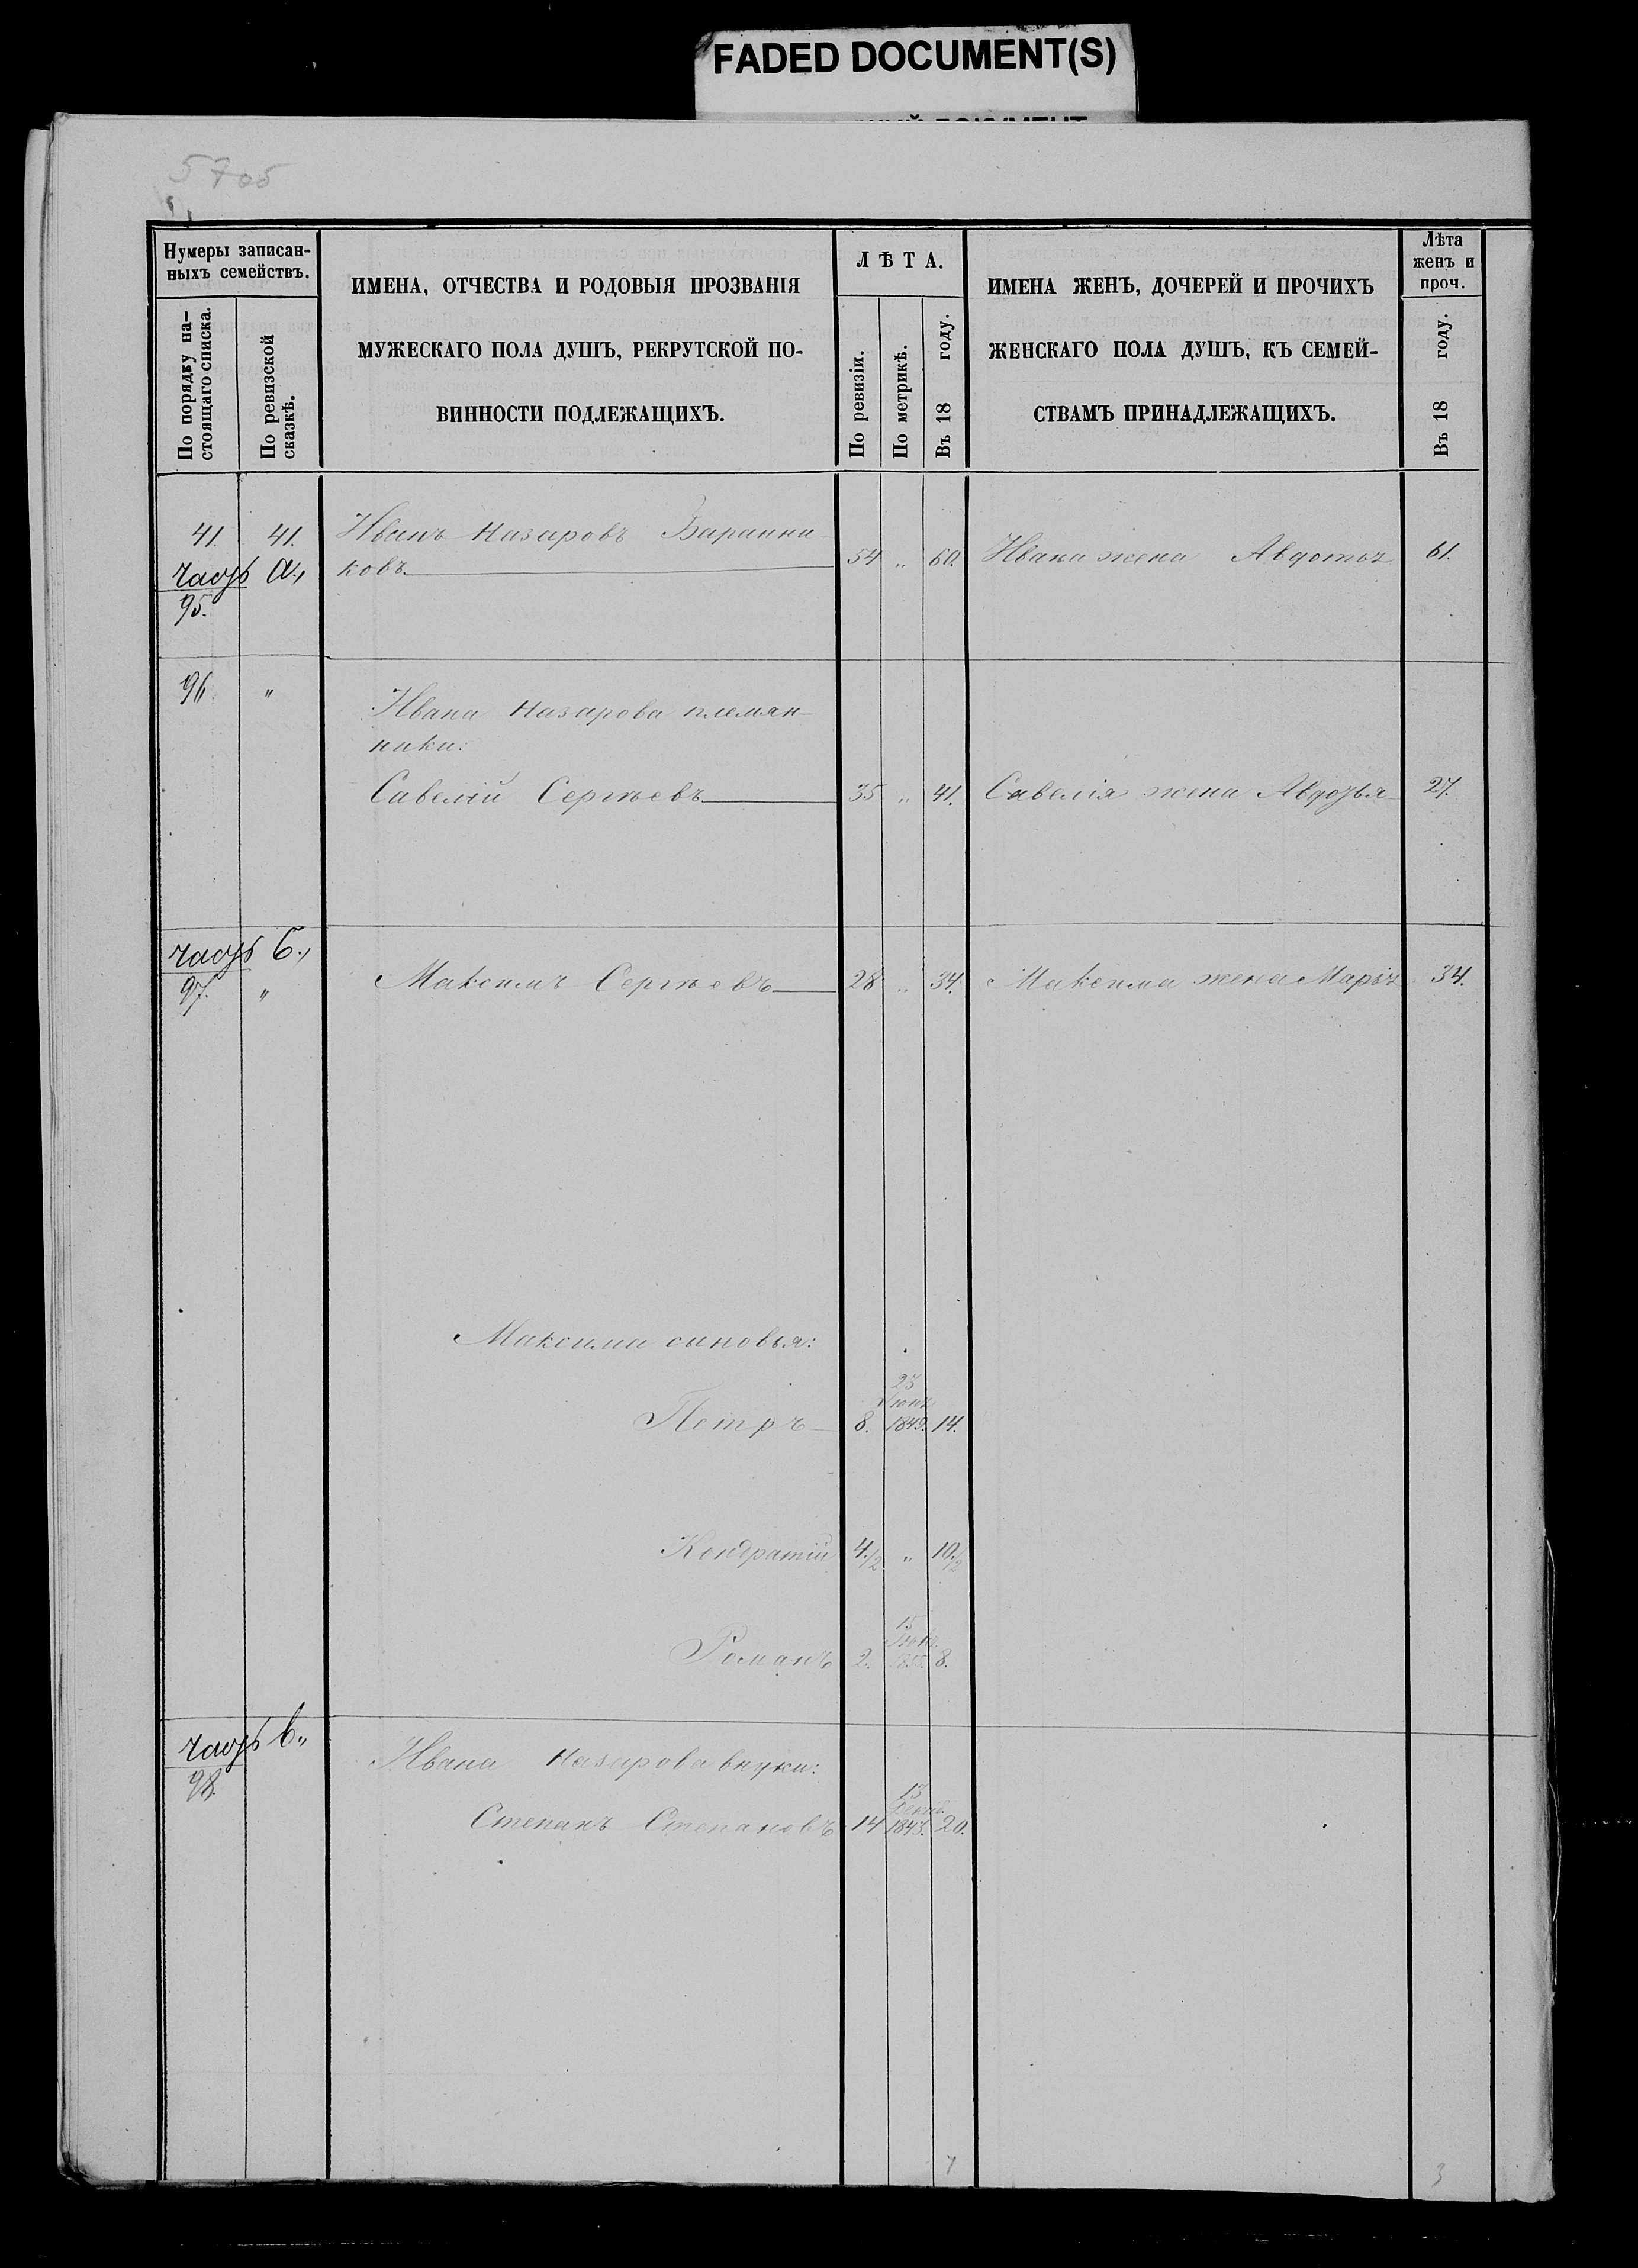 FADED DOCUMENT(S)
57об
Нумеры записан-
ныхъ семействъ.
По порядку на-
стоящаго списка.
По ревизской
сказкѣ.
ИМЕНА, ОТЧЕСТВА И РОДОВЫЯ ПРОЗВАНІЯ
МУЖЕСКАГО ПОЛА ДУШЪ, РЕКРУТСКОЙ ПО-
ВИННОСТИ ПОДЛЕЖАЩИХЪ.
Л Ѣ Т А.
По ревизіи.
По метрикѣ.
Въ 18 году.
ИМЕНА ЖЕНЪ, ДОЧЕРЕЙ И ПРОЧИХЪ
ЖЕНСКАГО ПОЛА ДУШЪ, КЪ СЕМЕЙ-
СТВАМЪ ПРИНАДЛЕЖАЩИХЪ.
Лѣта
женъ и
проч.
Въ 18 году.
41. 41. Иванъ Назаровъ Баранни-
часть а., ковъ 54 „ 60. Ивана жена Авдотья 61.
95.
96 „ Ивана Назарова племян-
ники:
Савелій Сергѣевъ 35 „ 41. Савелія жена Авдотья 27.
часть б.,
97. „ Максимъ Сергѣевъ 28 „ 34. Максима жена Марья 34.
Максима сыновья:
23
Петръ 8. 1849. 14.
Кондратій 4 1/2 „ 10 1/2
15
Романъ 2. 8.
часть в.,
98. Ивана Назарова внуки:
13
Степанъ Степановъ 14 1843. 20.
7 3